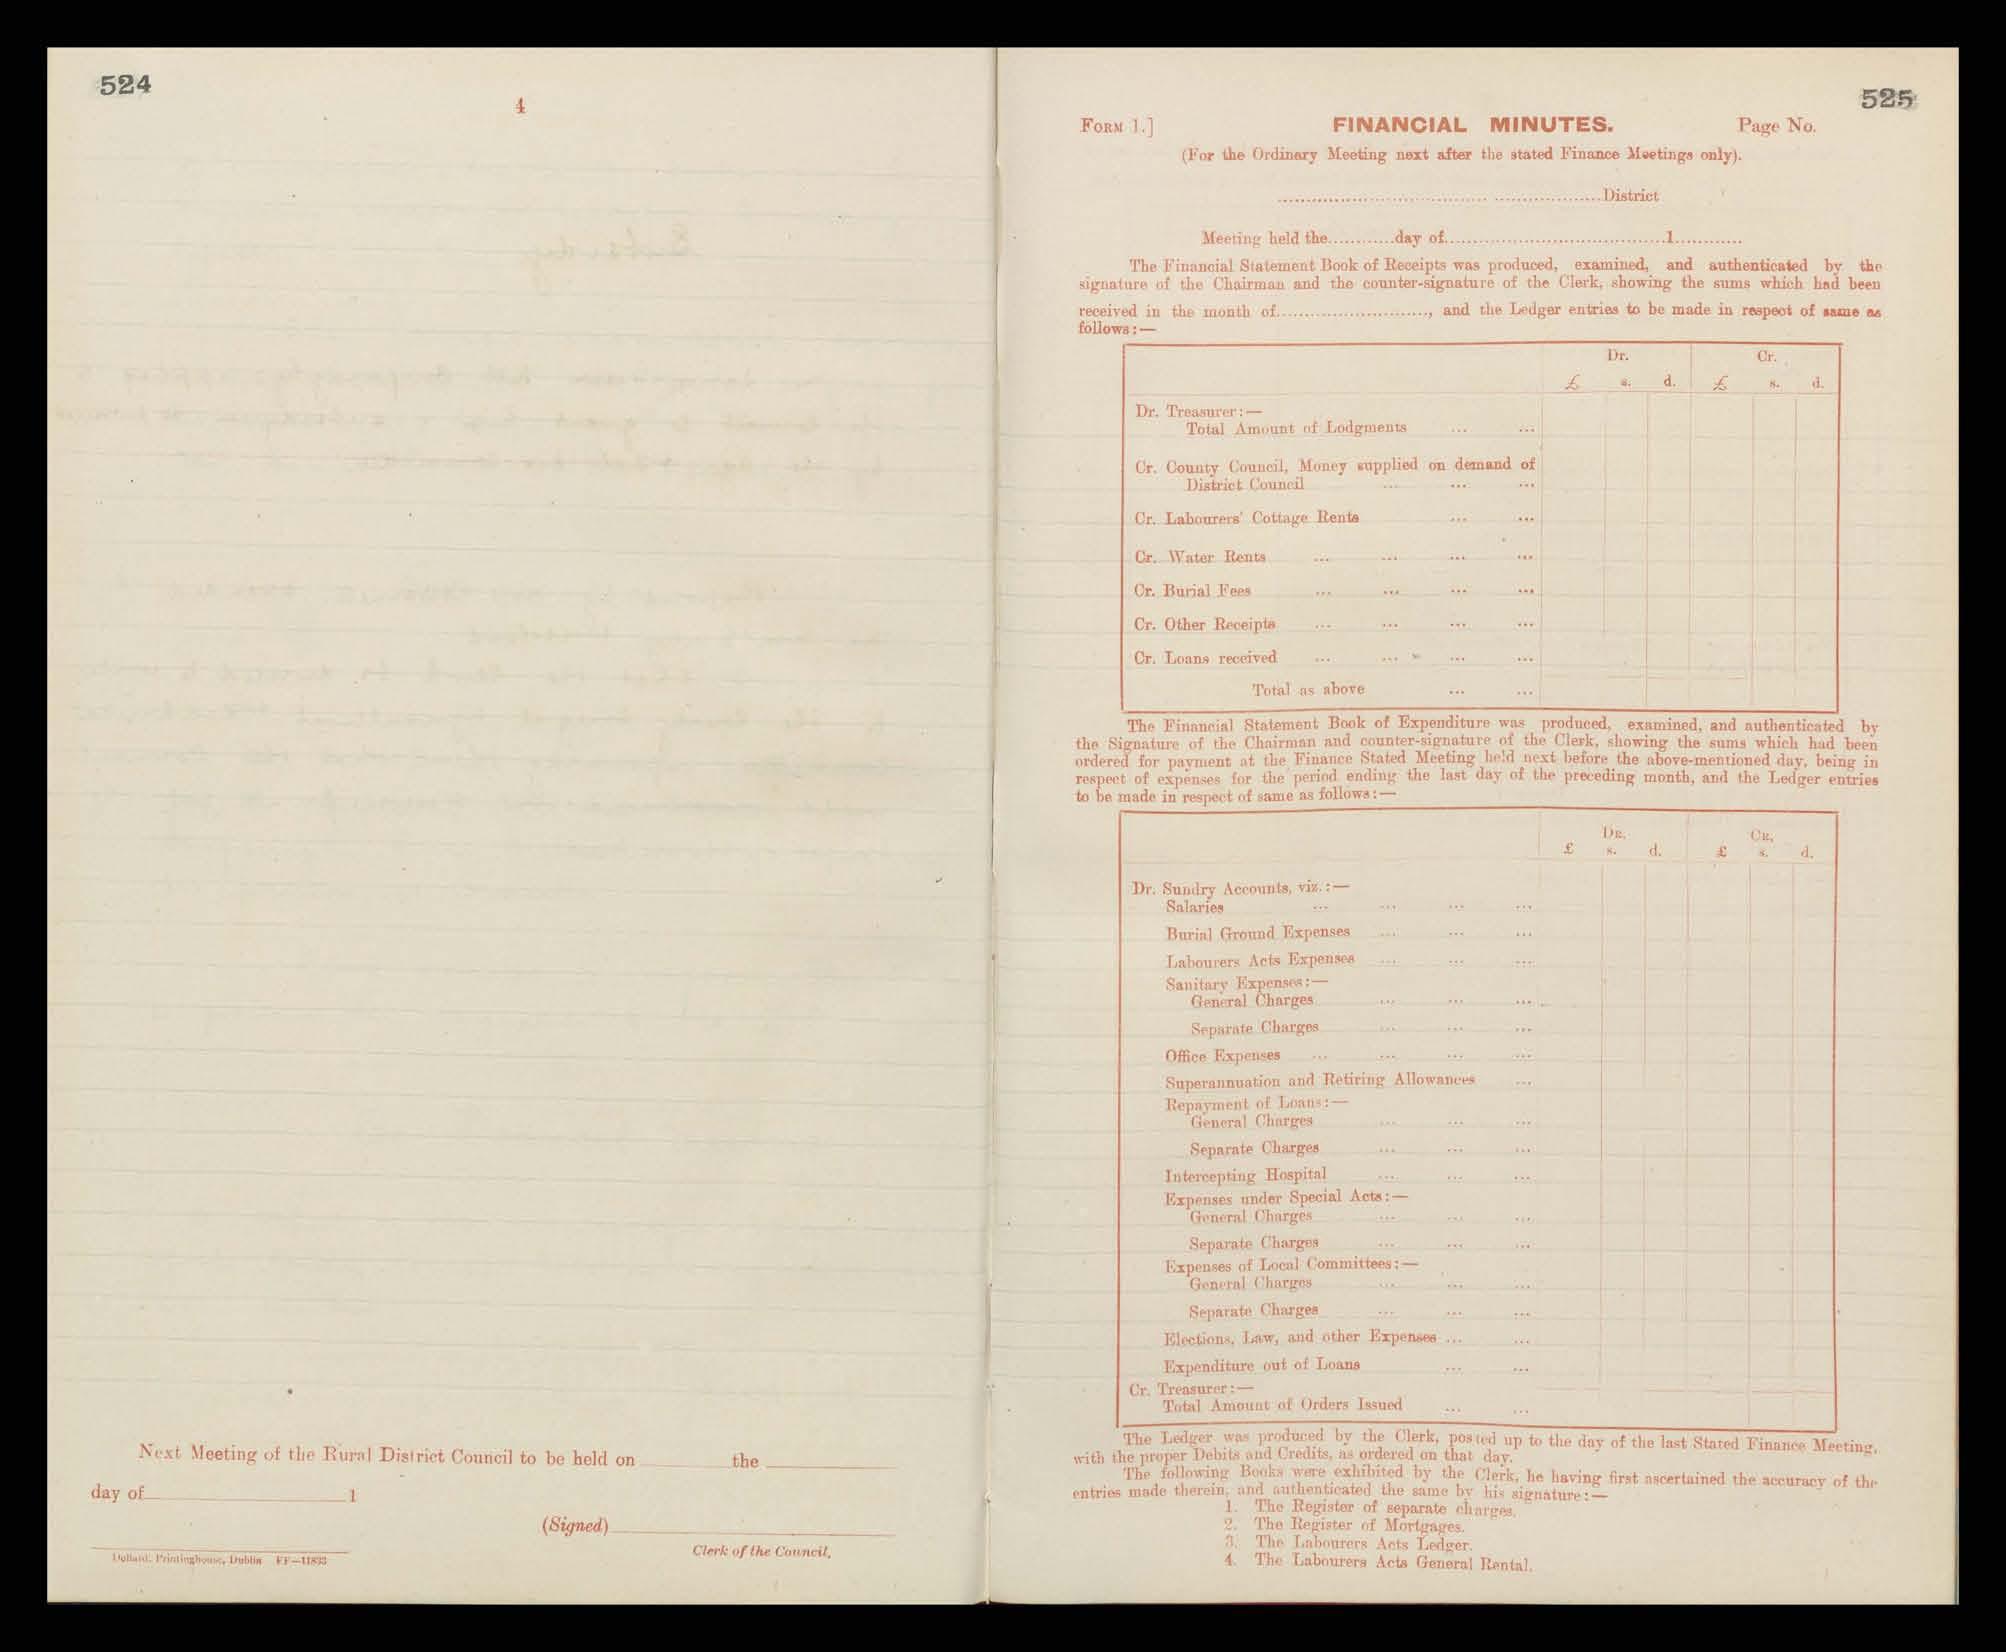 524
4
Next Meeting of the Rural District Council to be held on the
day of 1
(Signed)
Clerk of the Council,
Dollard, Printinghouse, Dublin FF—11833
525
FORM 1.] FINANCIAL MINUTES. Page No.
(For the Ordinary Meeting next after the stated Finance Meetings only).
District
Meeting held the............day of........................................1............
The Financial Statement Book of Receipts was produced, examined, and authenticated by the
signature of the Chairman and the counter-signature of the Clerk, showing the sums which had been
received in the month of..........................., and the Ledger entries to be made in respect of same as
follows:—
Dr. Cr.
£ s. d. £ s. d.
Dr. Treasurer:—
Total Amount of Lodgments ... ...
Cr. County Council, Money supplied on demand of
District Council ... ... ...
Cr. Labourers' Cottage Rents ... ...
Cr. Water Rents ... ... ... ...
Cr. Burial Fees ... ... ... ...
Cr. Other Receipts ... ... ... ...
Cr. Loans received ... ... ... ...
Total as above ... ...
The Financial Statement Book of Expenditure was produced, examined, and authenticated by
the Signature of the Chairman and counter-signature of the Clerk, showing the sums which had been
ordered for payment at the Finance Stated Meeting held next before the above-mentioned day, being in
respect of expenses for the period ending the last day of the preceding month, and the Ledger entries
to be made in respect of same as follows:—
DR. CR.
£ s. d. £ s. d.
Dr. Sundry Accounts, viz.:—
Salaries ... ... ... ...
Burial Ground Expenses ... ... ...
Labourers Acts Expenses ... ... ...
Sanitary Expenses:—
General Charges ... ... ...
Separate Charges ... ... ...
Office Expenses ... ... ... ...
Superannuation and Retiring Allowances ...
Repayment of Loans:—
General Charges ... ... ...
Separate Charges ... ... ...
Intercepting Hospital ... ... ...
Expenses under Special Acts:—
General Charges ... ... ...
Separate Charges ... ... ...
Expenses of Local Committees:—
General Charges ... ... ...
Separate Charges ... ... ...
Elections, Law, and other Expenses ... ...
Expenditure out of Loans ... ...
Cr. Treasurer:—
Total Amount of Orders Issued ... ...
The Ledger was produced by the Clerk, posted up to the day of the last Stated Finance Meeting,
with the proper Debits and Credits, as ordered on that day.
The following Books were exhibited by the Clerk, he having first ascertained the accuracy of the
entries made therein, and authenticated the same by his signature:—
1. The Register of separate charges.
2. The Register of Mortgages.
3. The Labourers Acts Ledger.
4. The Labourers Acts General Rental.